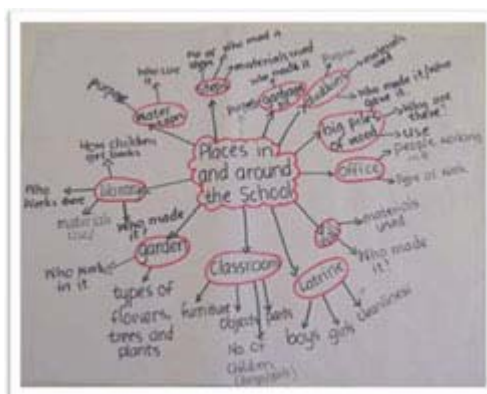 Places in
and around
the School
Purpose
Who use
it
water
steps
no of
steps
who used it
materials used
who made it
garbage
pit
materials
used
Who made it/Who
gave it
big piles
of wood
Why are
these?
use
Office
people working
type of work
materials
used
Who made
it?
Latrine
boys
girls
cleanliness
Classroom
furniture
objects
No of
children
garden
Who work
in it
types of
flowers,
trees and
plants
Library
How children
get books
Who
works there
materials
used
Who made
it?